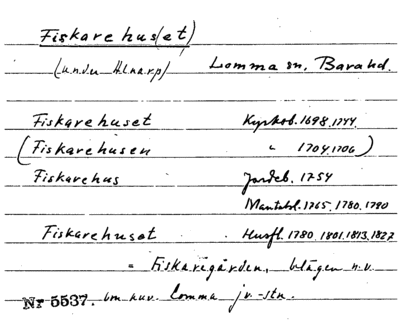 Fiskarehus(et)
(under Alnarp) Lomma sn, Bara hd.
Fiskarehuset Kyrkob. 1698, 1744.
(Fiskarehusen " 1704, 1706)
Fiskarehus Jordeb. 1754
Mantalsl. 1765, 1780, 1790
Fiskarehuset Husfl. 1780, 1801, 1813, 1822
= Fiskaregården, belägen n.v.
Nr 5537. om nuv. Lomma jv-stn.